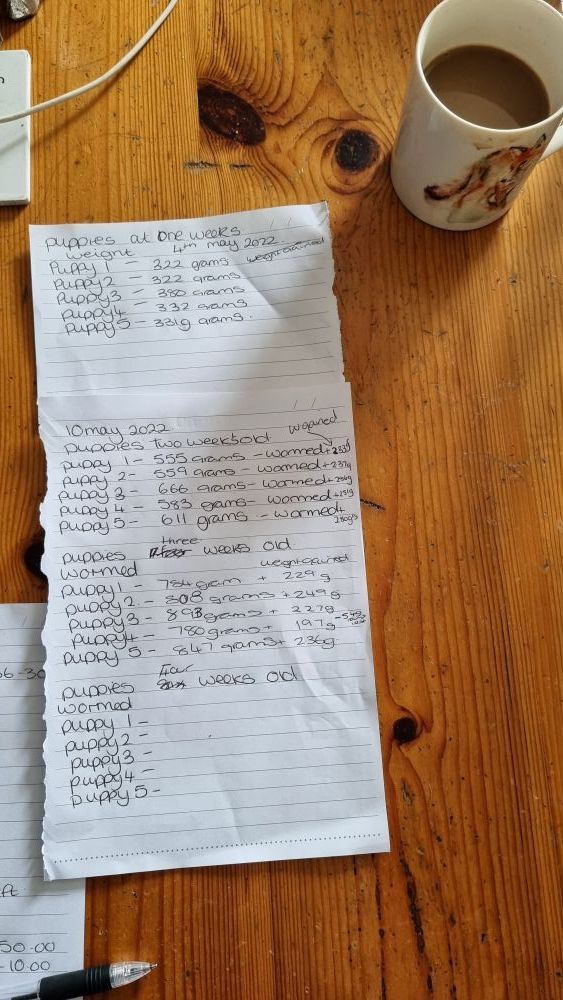 puppies at one weeks
weight 4th may 2022
Puppy 1 - 322 grams weight gained
Puppy 2 - 322 grams
Puppy 3 - 380 grams
Puppy 4 - 332 grams
Puppy 5 - 331g grams.
10 may 2022
puppies two weeks old w gained
puppy 1 - 555 grams - wormed + 233g
puppy 2 - 559 grams - wormed + 237g
puppy 3 - 666 grams - wormed + 286g
puppy 4 - 583 grams - wormed + 251g
puppy 5 - 611 grams - wormed +
280g
three
puppies weeks old.
wormed weight gained
puppy 1 - 784 gram + 229g
puppy 2 - 808 grams + 249g
puppy 3 - 893 grams + 227g
puppy 4 - 780 grams + 197g
puppy 5 - 847 grams + 236g
four
puppies weeks old
wormed
puppy 1 -
puppy 2 -
puppy 3 -
puppy 4 -
puppy 5 -
06-30
ft
50.00
-10.00